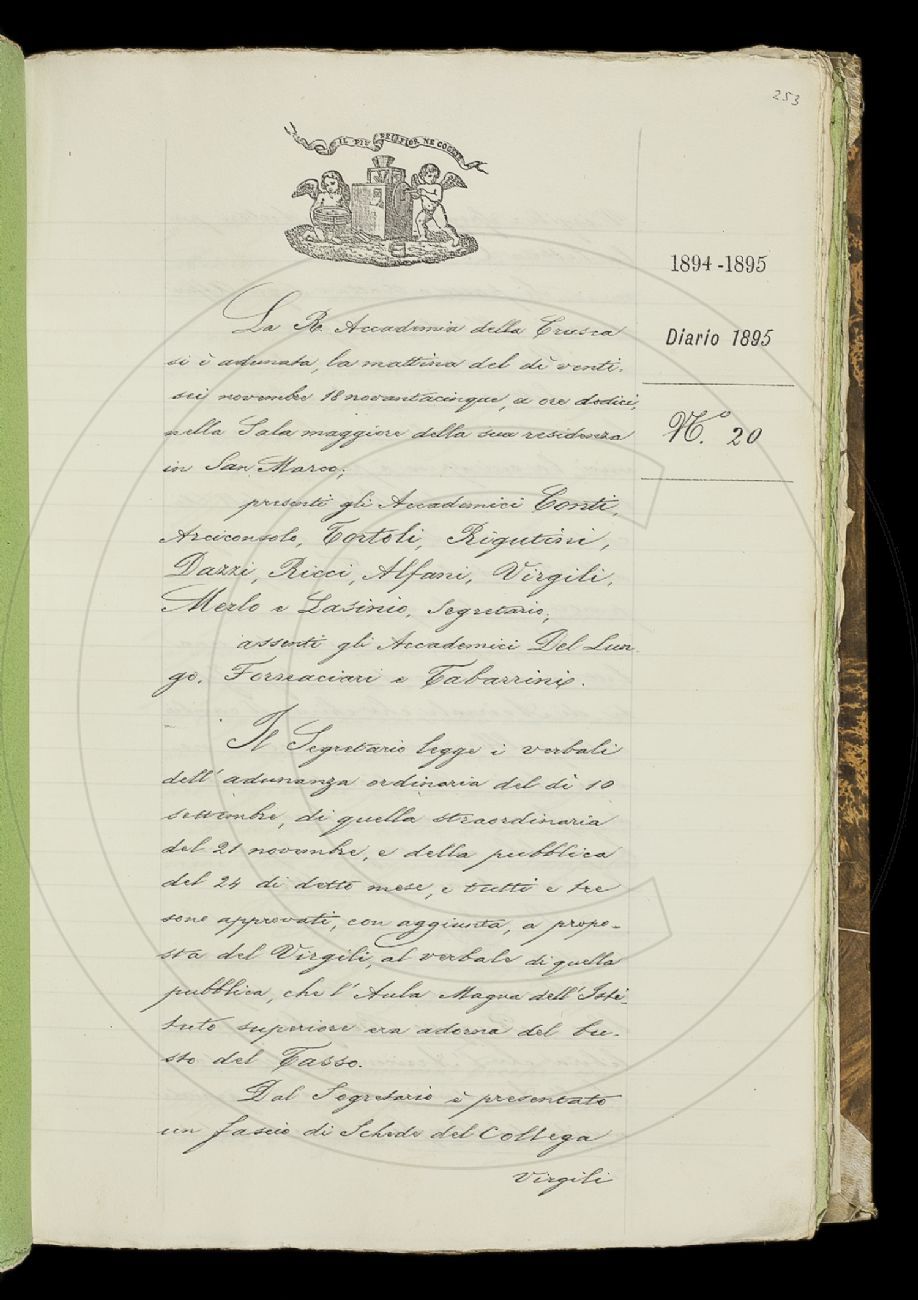 253
IL PIÙ BEL FIOR NE COGLIE
1894-1895
Diario 1895
N.º 20
La R. Accademia della Crusca
si è adunata, la mattina del dì venti-
sei novembre 18novantacinque, a ore dodici,
nella Sala maggiore della sua residenza
in San Marco;
presenti gli Accademici Conti,
Arciconsolo, Tortoli, Rigutini,
Dazzi, Ricci, Alfani, Virgili,
Merlo e Lasinio, Segretario;
assenti gli Accademici Del Lun-
go, Fornaciari e Tabarrini.
Il Segretario legge i verbali
dell'adunanza ordinaria del dì 10
settembre, di quella straordinaria
del 21 novembre, e della pubblica
del 24 di detto mese, e tutti e tre
sono approvati, con aggiunta, a propo-
sta del Virgili, al verbale di quella
pubblica, che l'Aula Magna dell'Isti-
tuto superiore era adorna del bu-
sto del Tasso.
Dal Segretario è presentato
un fascio di Schede del Collega
Virgili